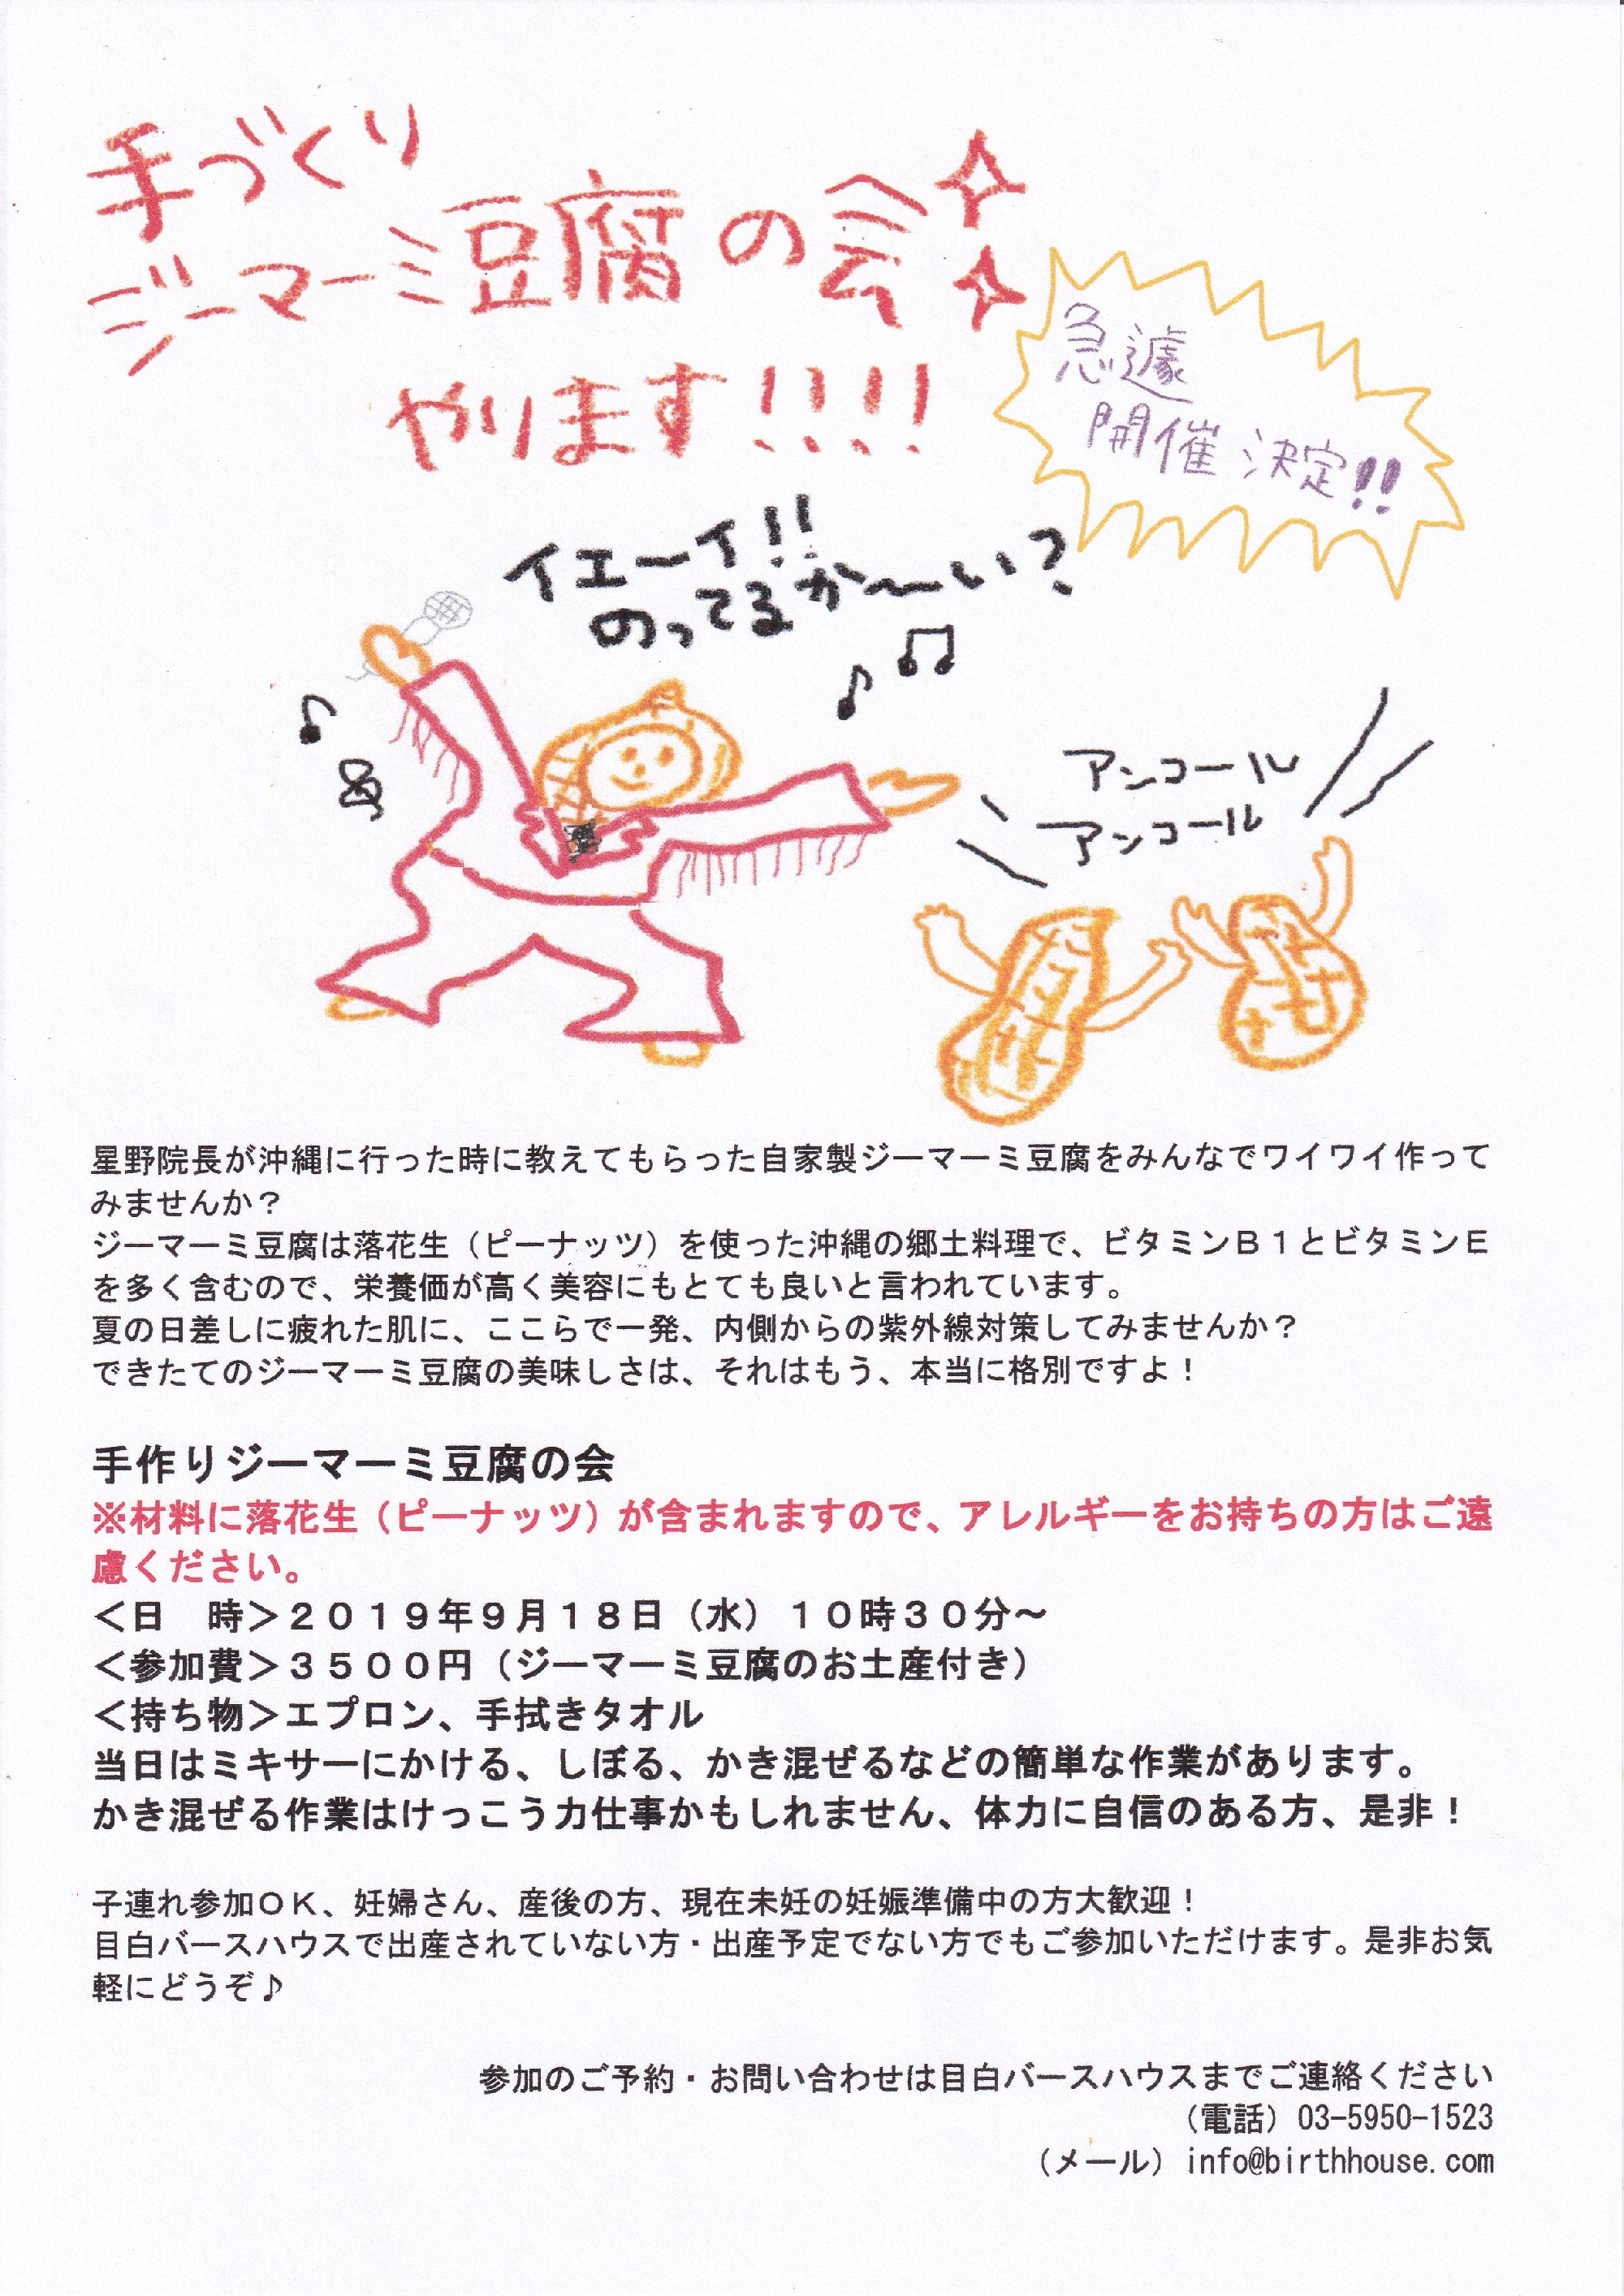 手づくり
ジーマーミ豆腐の会
やります!!!!
急遽
開催決定!!
イエーイ!!
のってるか〜い?
アンコール
アンコール
星野院長が沖縄に行った時に教えてもらった自家製ジーマーミ豆腐をみんなでワイワイ作って
みませんか？
ジーマーミ豆腐は落花生（ピーナッツ）を使った沖縄の郷土料理で、ビタミンＢ１とビタミンＥ
を多く含むので、栄養価が高く美容にもとても良いと言われています。
夏の日差しに疲れた肌に、ここらで一発、内側からの紫外線対策してみませんか？
できたてのジーマーミ豆腐の美味しさは、それはもう、本当に格別ですよ！
手作りジーマーミ豆腐の会
※材料に落花生（ピーナッツ）が含まれますので、アレルギーをお持ちの方はご遠
慮ください。
＜日　時＞２０１９年９月１８日（水）１０時３０分〜
＜参加費＞３５００円（ジーマーミ豆腐のお土産付き）
＜持ち物＞エプロン、手拭きタオル
当日はミキサーにかける、しぼる、かき混ぜるなどの簡単な作業があります。
かき混ぜる作業はけっこう力仕事かもしれません、体力に自信のある方、是非！
子連れ参加ＯＫ、妊婦さん、産後の方、現在未妊の妊娠準備中の方大歓迎！
目白バースハウスで出産されていない方・出産予定でない方でもご参加いただけます。是非お気
軽にどうぞ♪
参加のご予約・お問い合わせは目白バースハウスまでご連絡ください
（電話）03-5950-1523
（メール）info@birthhouse.com